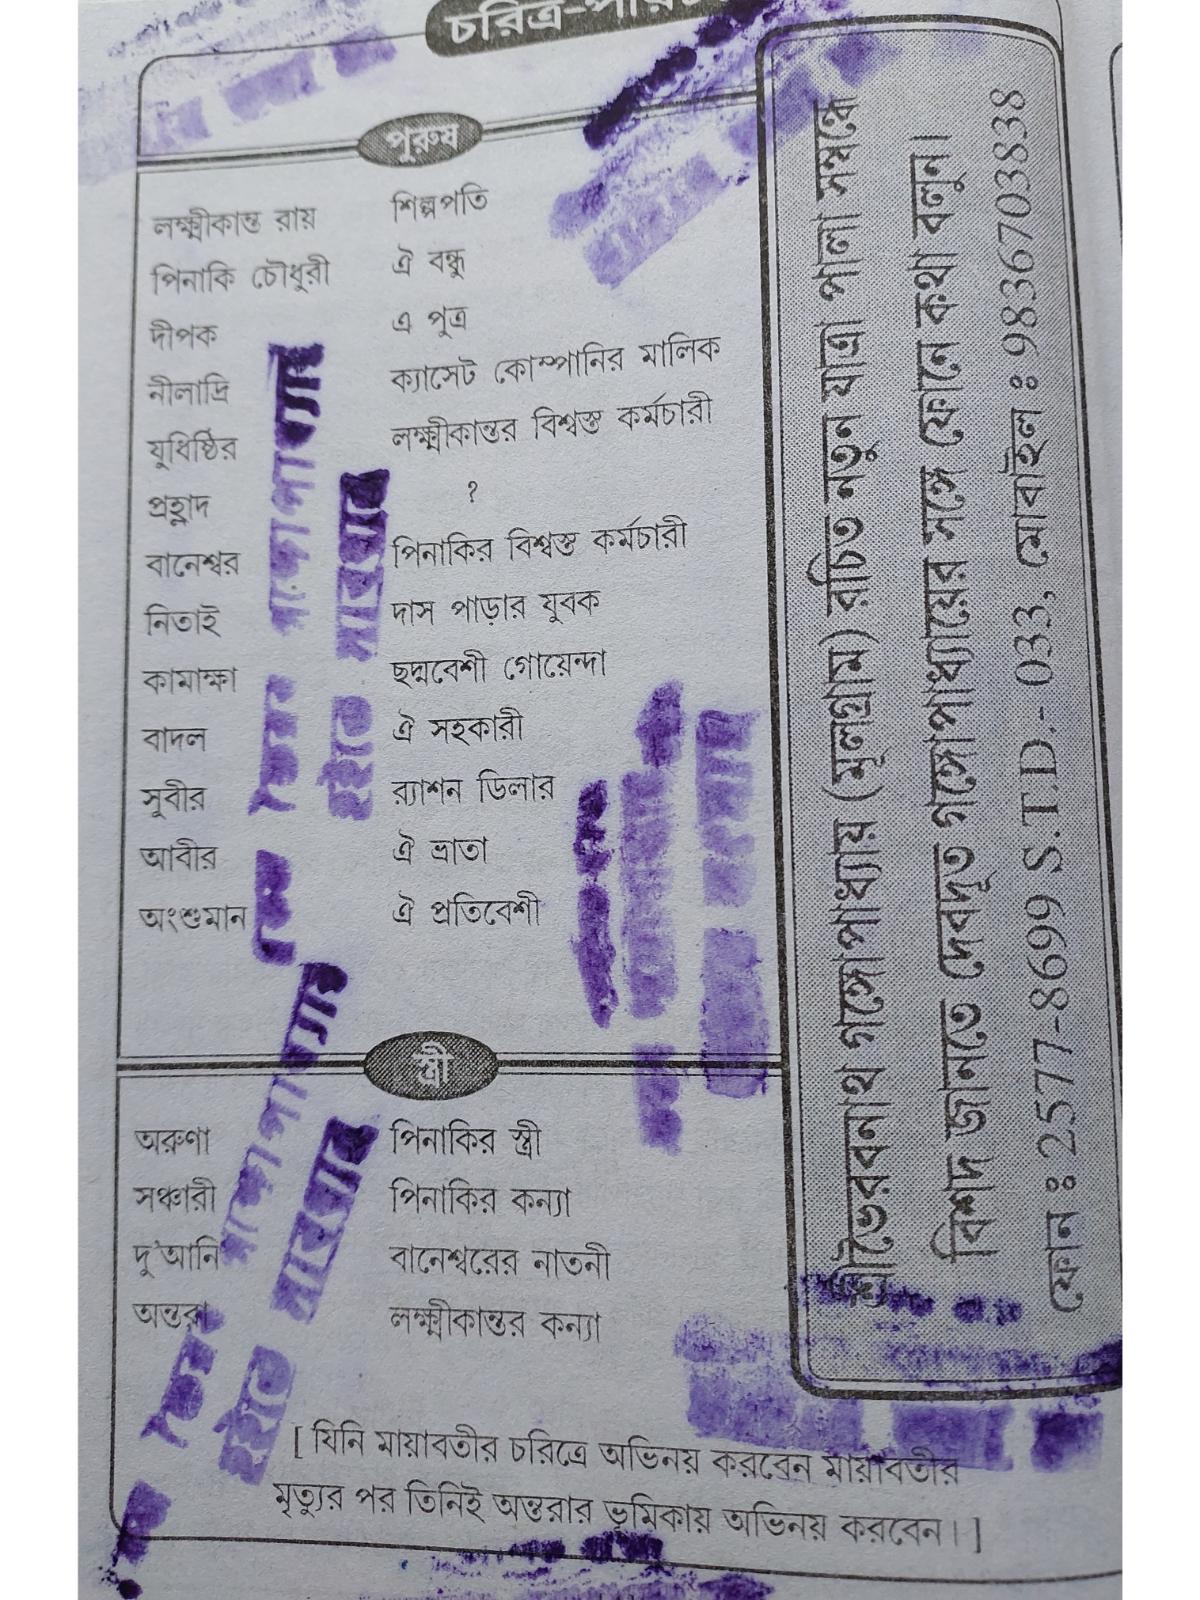 পুরুষ
লক্ষ্মীকান্ত রায় শিল্পপতি
পিনাকি চৌধুরী ঐ বন্ধু
দীপক এ পুত্র
নীলাদ্রি ক্যাসেট কোম্পানির মালিক
যুধিষ্ঠির লক্ষ্মীকান্তর বিশ্বস্ত কর্মচারী
প্রহ্লাদ ?
বানেশ্বর পিনাকির বিশ্বস্ত কর্মচারী
নিতাই দাস পাড়ার যুবক
কামাক্ষা ছদ্মবেশী গোয়েন্দা
বাদল ঐ সহকারী
সুবীর র‍্যাশন ডিলার
আবীর ঐ ভ্রাতা
অংশুমান ঐ প্রতিবেশী
স্ত্রী
অরুণা পিনাকির স্ত্রী
সঞ্চারী পিনাকির কন্যা
দু'আনি বানেশ্বরের নাতনী
অন্তরা লক্ষ্মীকান্তর কন্যা
[ যিনি মায়াবতীর চরিত্রে অভিনয় করবেন মায়াবতীর
মৃত্যুর পর তিনিই অন্তরার ভূমিকায় অভিনয় করবেন। ]
শ্রীভৈরবনাথ গঙ্গোপাধ্যায় (মূলগ্রাম) রচিত নতুন যাত্রা পালা সম্বন্ধে
বিশদ জানতে দেবদূত গঙ্গোপাধ্যায়ের সঙ্গে ফোনে কথা বলুন।
ফোন ঃ 2577-8699 S.T.D.- 033, মোবাইল ঃ 9836703838